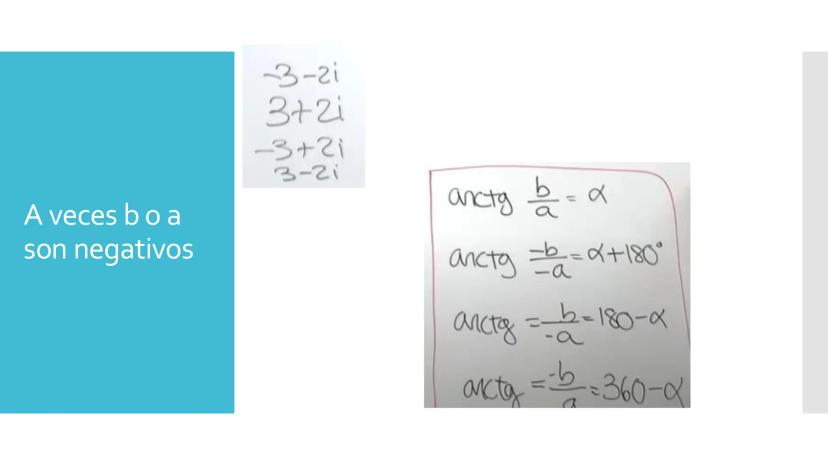 A veces b o a
son negativos
-3-2i
3+2i
-3+2i
3-2i
arctg b/a = α
arctg -b/-a = α+180°
arctg = b/-a = 180-α
arctg = -b/a = 360-α